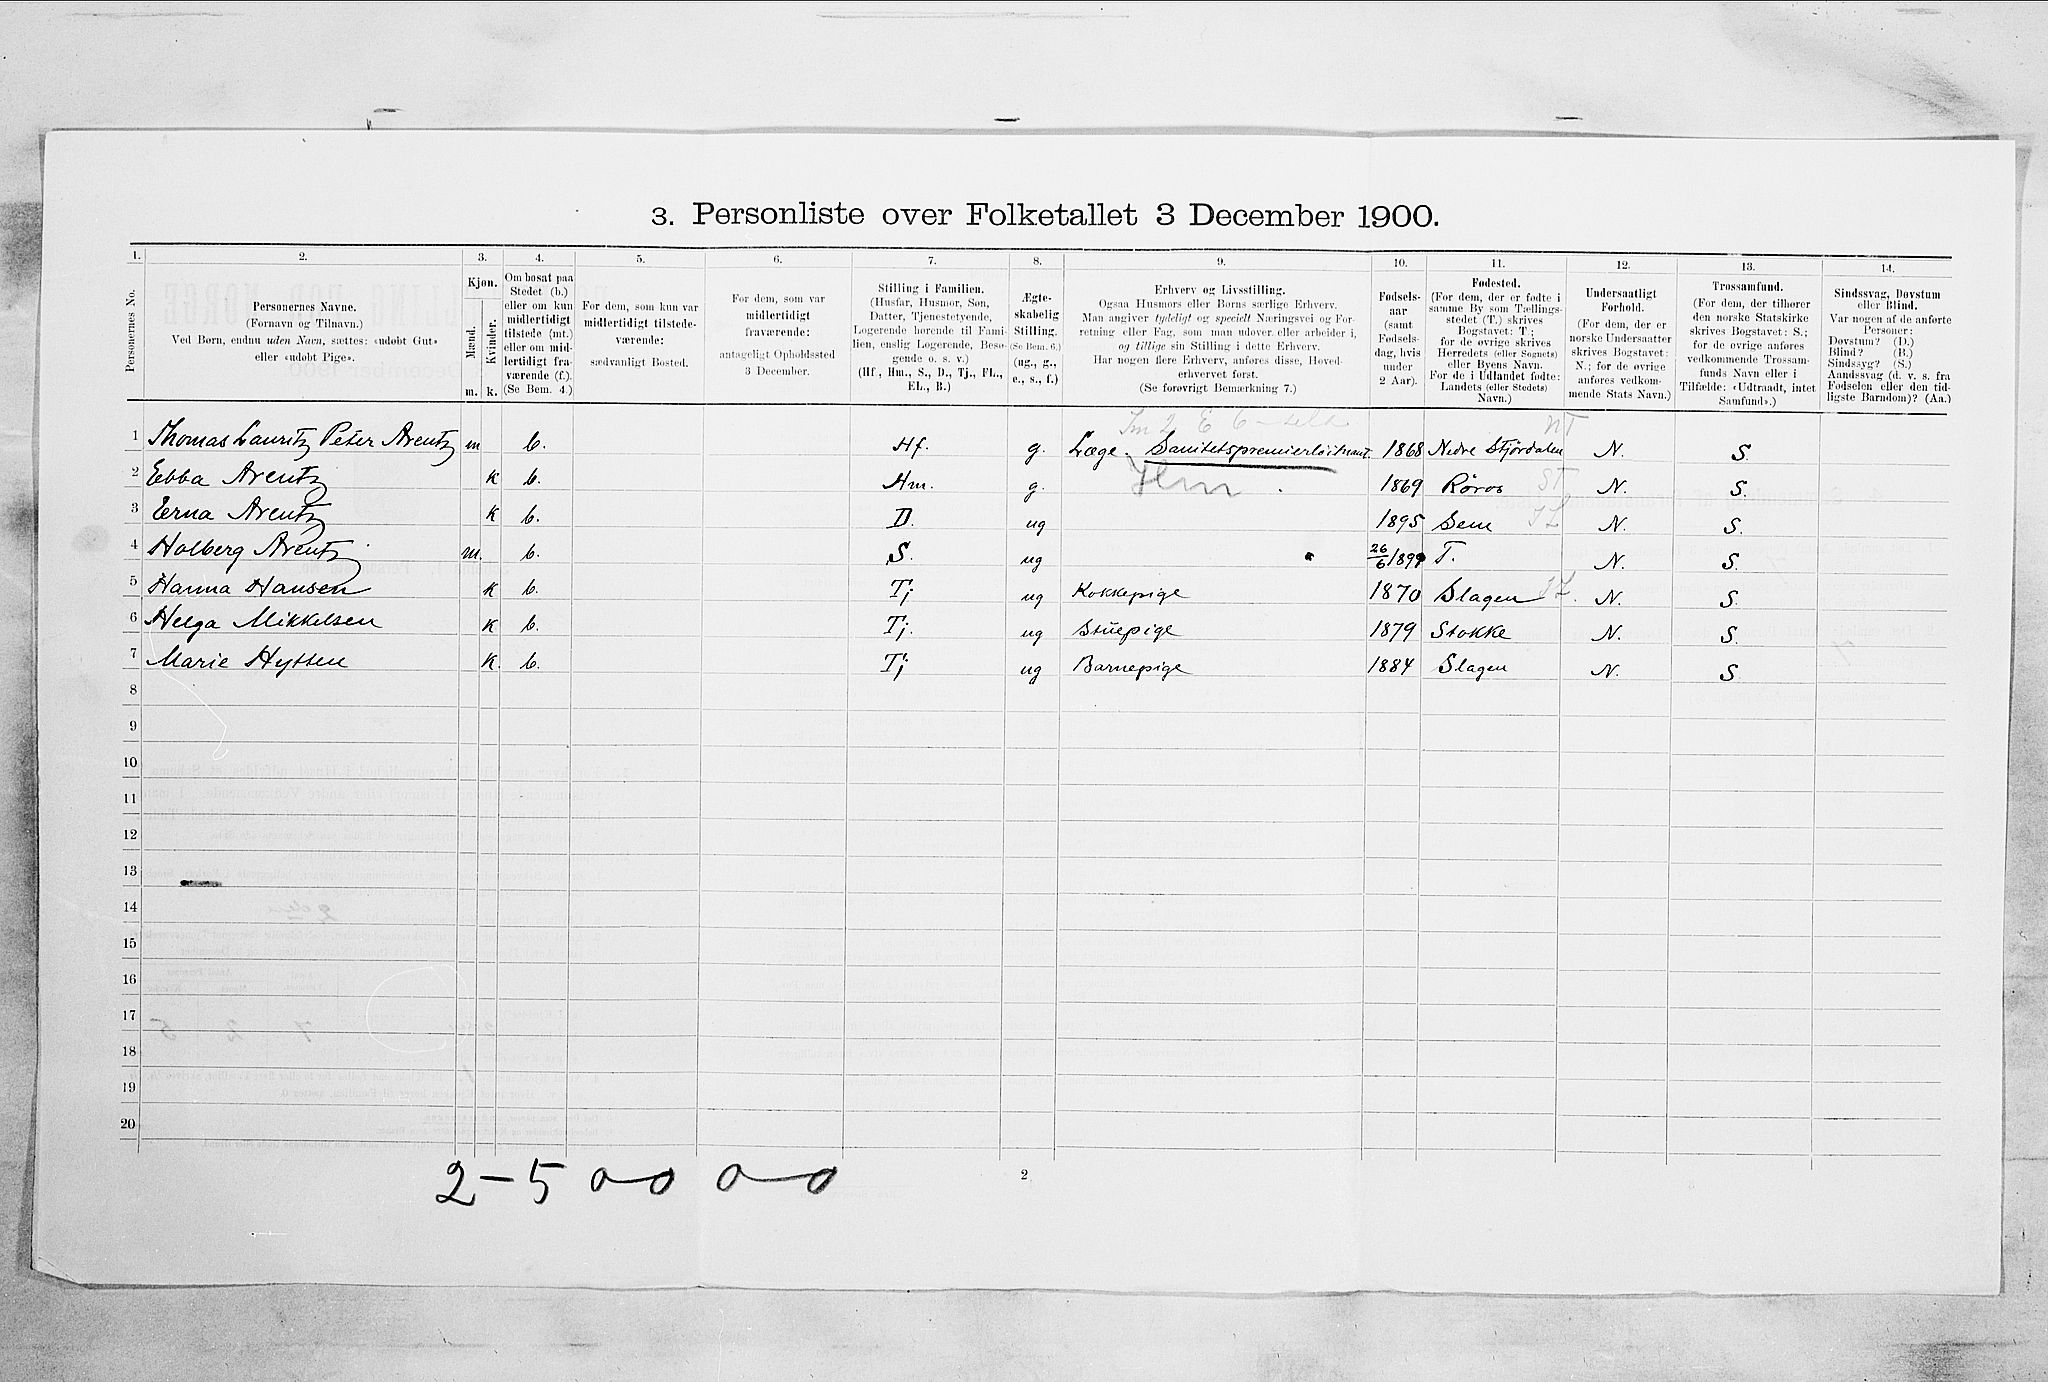 3. Personliste over Folketallet 3 December 1900.
1. 2. 3. 4. 5. 6. 7. 8. 9. 10. 11. 12. 13. 14.
Personernes No.
Personernes Navne.
(Fornavn og Tilnavn.)
Ved Børn, endnu uden Navn, sættes: «udøbt Gut»
eller «udøbt Pige».
Kjøn.
Mænd.
Kvinder.
m. k.
Om bosat paa
Stedet (b.)
eller om kun
midlertidigt
tilstede (mt.)
eller om mid-
lertidigt fra-
værende (f.).
(Se Bem. 4.)
For dem, som kun var
midlertidigt tilstede-
værende:
sædvanligt Bosted.
For dem, som var
midlertidigt
fraværende:
antageligt Opholdssted
3 December.
Stilling i Familien.
(Husfar, Husmor, Søn,
Datter, Tjenestetyende,
Logerende hørende til Fami-
lien, enslig Logerende, Besø-
gende o. s. v.)
(Hf., Hm., S., D., Tj., FL.,
EL., B.)
Ægte-
skabelig
Stilling.
(Se Bem. 6.)
(ug., g.,
e., s., f.)
Erhverv og Livsstilling.
Ogsaa Husmors eller Børns særlige Erhverv.
Man angiver tydeligt og specielt Næringsvei og For-
retning eller Fag, som man udøver eller arbeider i,
og tillige sin Stilling i dette Erhverv.
Har nogen flere Erhverv, anføres disse, Hoved-
erhvervet først.
(Se forøvrigt Bemærkning 7.)
Fødsels-
aar
(samt
Fødsels-
dag, hvis
under
2 Aar).
Fødested.
(For dem, der er fødte i
samme By som Tællings-
stedet (T.) skrives
Bogstavet: T.;
for de øvrige skrives
Herredets (eller Sognets)
eller Byens Navn.
For de i Udlandet fødte:
Landets (eller Stedets)
Navn.)
Undersaatligt
Forhold.
(For dem, der er
norske Undersaatter
skrives Bogstavet:
N.; for de øvrige
anføres vedkom-
mende Stats Navn.)
Trossamfund.
(For dem, der tilhører
den norske Statskirke
skrives Bogstavet: S.;
for de øvrige anføres
vedkommende Trossam-
funds Navn eller i
Tilfælde: «Udtraadt, intet
Samfund».)
Sindssvag, Døvstum
eller Blind.
Var nogen af de anførte
Personer:
Døvstum? (D.)
Blind? (B.)
Sindssyg? (S.)
Aandssvag (d. v. s. fra
Fødselen eller den tid-
ligste Barndom)? (Aa.)
NT
1 Thomas Lauritz Peter Arentz m b. Hf. g. Læge. Sanitetspremierløitnant 1868 Nedre Stjørdalen N. S.
2 Ebba Arentz k b. Hm. g. 1869 Røros ST N. S.
3 Erna Arentz k b. D. ug 1895 Sem N. S.
4 Holberg Arentz m. b. S. ug 26/6 1899 T. N. S.
5 Hanna Hansen k b. Tj ug Kokkepige 1870 Slagen N. S.
6 Helga Mikkelsen k b. Tj. ug Stuepige 1879 Stokke N. S.
7 Marie Hytten k b. Tj ug Barnepige 1884 Slagen N. S.
8
9
10
11
12
13
14
15
16
17
18
19
20
2-5 0-0 0-0
2